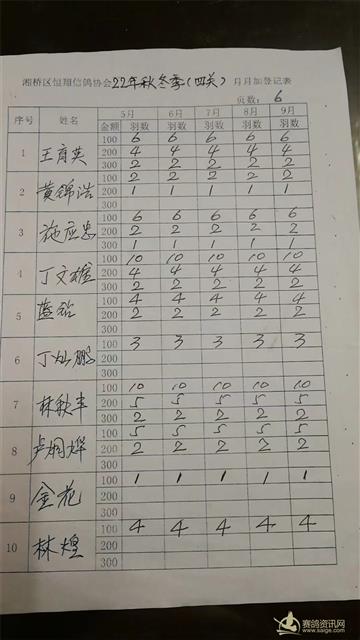 湘桥区恒翔信鸽协会22年秋冬季(四关)月月加登记表
页数: 6
序号 姓名 5月 6月 7月 8月 9月
金额 羽数 羽数 羽数 羽数 羽数
1 王育英 100 6 6 6 6 6
200 4 4 4 4 4
300 2 2 2 2 2
2 黄锦浩 100 2 2 2 2 2
200 1 1 1 1 1
300
3 施应忠 100 6 6 6 6 6
200 2 2 2 2 2
300 1 1 1 1 1
4 丁文雄 100 10 10 10 10 10
200 4 4 4 4 4
300 2 2 2 2 2
5 100 4 4 4 4 4
200 2 2 2 2 2
300
6 丁灿鹏 100 3 3 3 3 3
200
300
7 林秋丰 100 10 10 10 10 10
200 5 5 5 5 5
300 2 2 2 2 2
8 卢炯烨 100 5 5 5 5 5
200 2 2 2 2 2
300
9 金花 100 1 1 1 1 1
200
300
10 林煌 100 4 4 4 4 4
200
300
赛鸽资讯网
www.saige.com